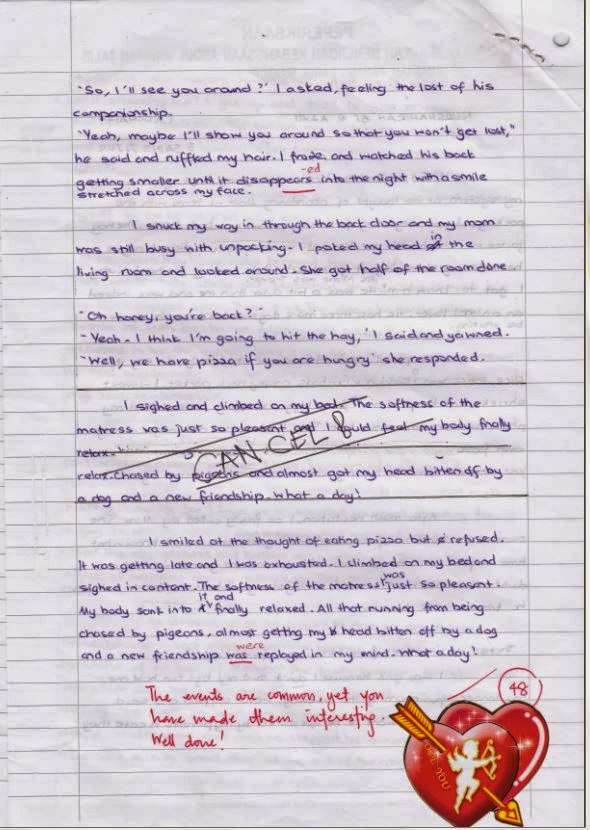 "So, I'll see you around?" I asked, feeling the lost of his
companionship.
"Yeah, maybe I'll show you around so that you won't get lost,"
he said and ruffled my hair. I froze and watched his back
-ed
getting smaller until it disappears into the night with a smile
stretched across my face.
I snuck my way in through the back door and my mom
was still busy with unpacking. I poked my head in the
living room and looked around. She got half of the room done.
"Oh honey, you're back?"
"Yeah. I think I'm going to hit the hay," I said and yawned.
"Well, we have pizza if you are hungry" she responded.
I sighed and climbed on my bed. The softness of the
matress was just so pleasant and I could feel my body fnally
relax.
CANCEL
relax. Chased by pigeons and almost got my head bitten off by
a dog and a new friendship. What a day!
I smiled at the thought of eating pizza but refused.
It was getting late and I was exhausted. I climbed on my bed and
sighed in content. The softness of the matress was just so pleasant.
My body sank into it and finally relaxed. All that running from being
chased by pigeons, almost getting my head bitten off by a dog
were
and a new friendship was replayed in my mind. What a day!
48
The events are common, yet you
have made them interesting.
Well done!
LOVE YOU